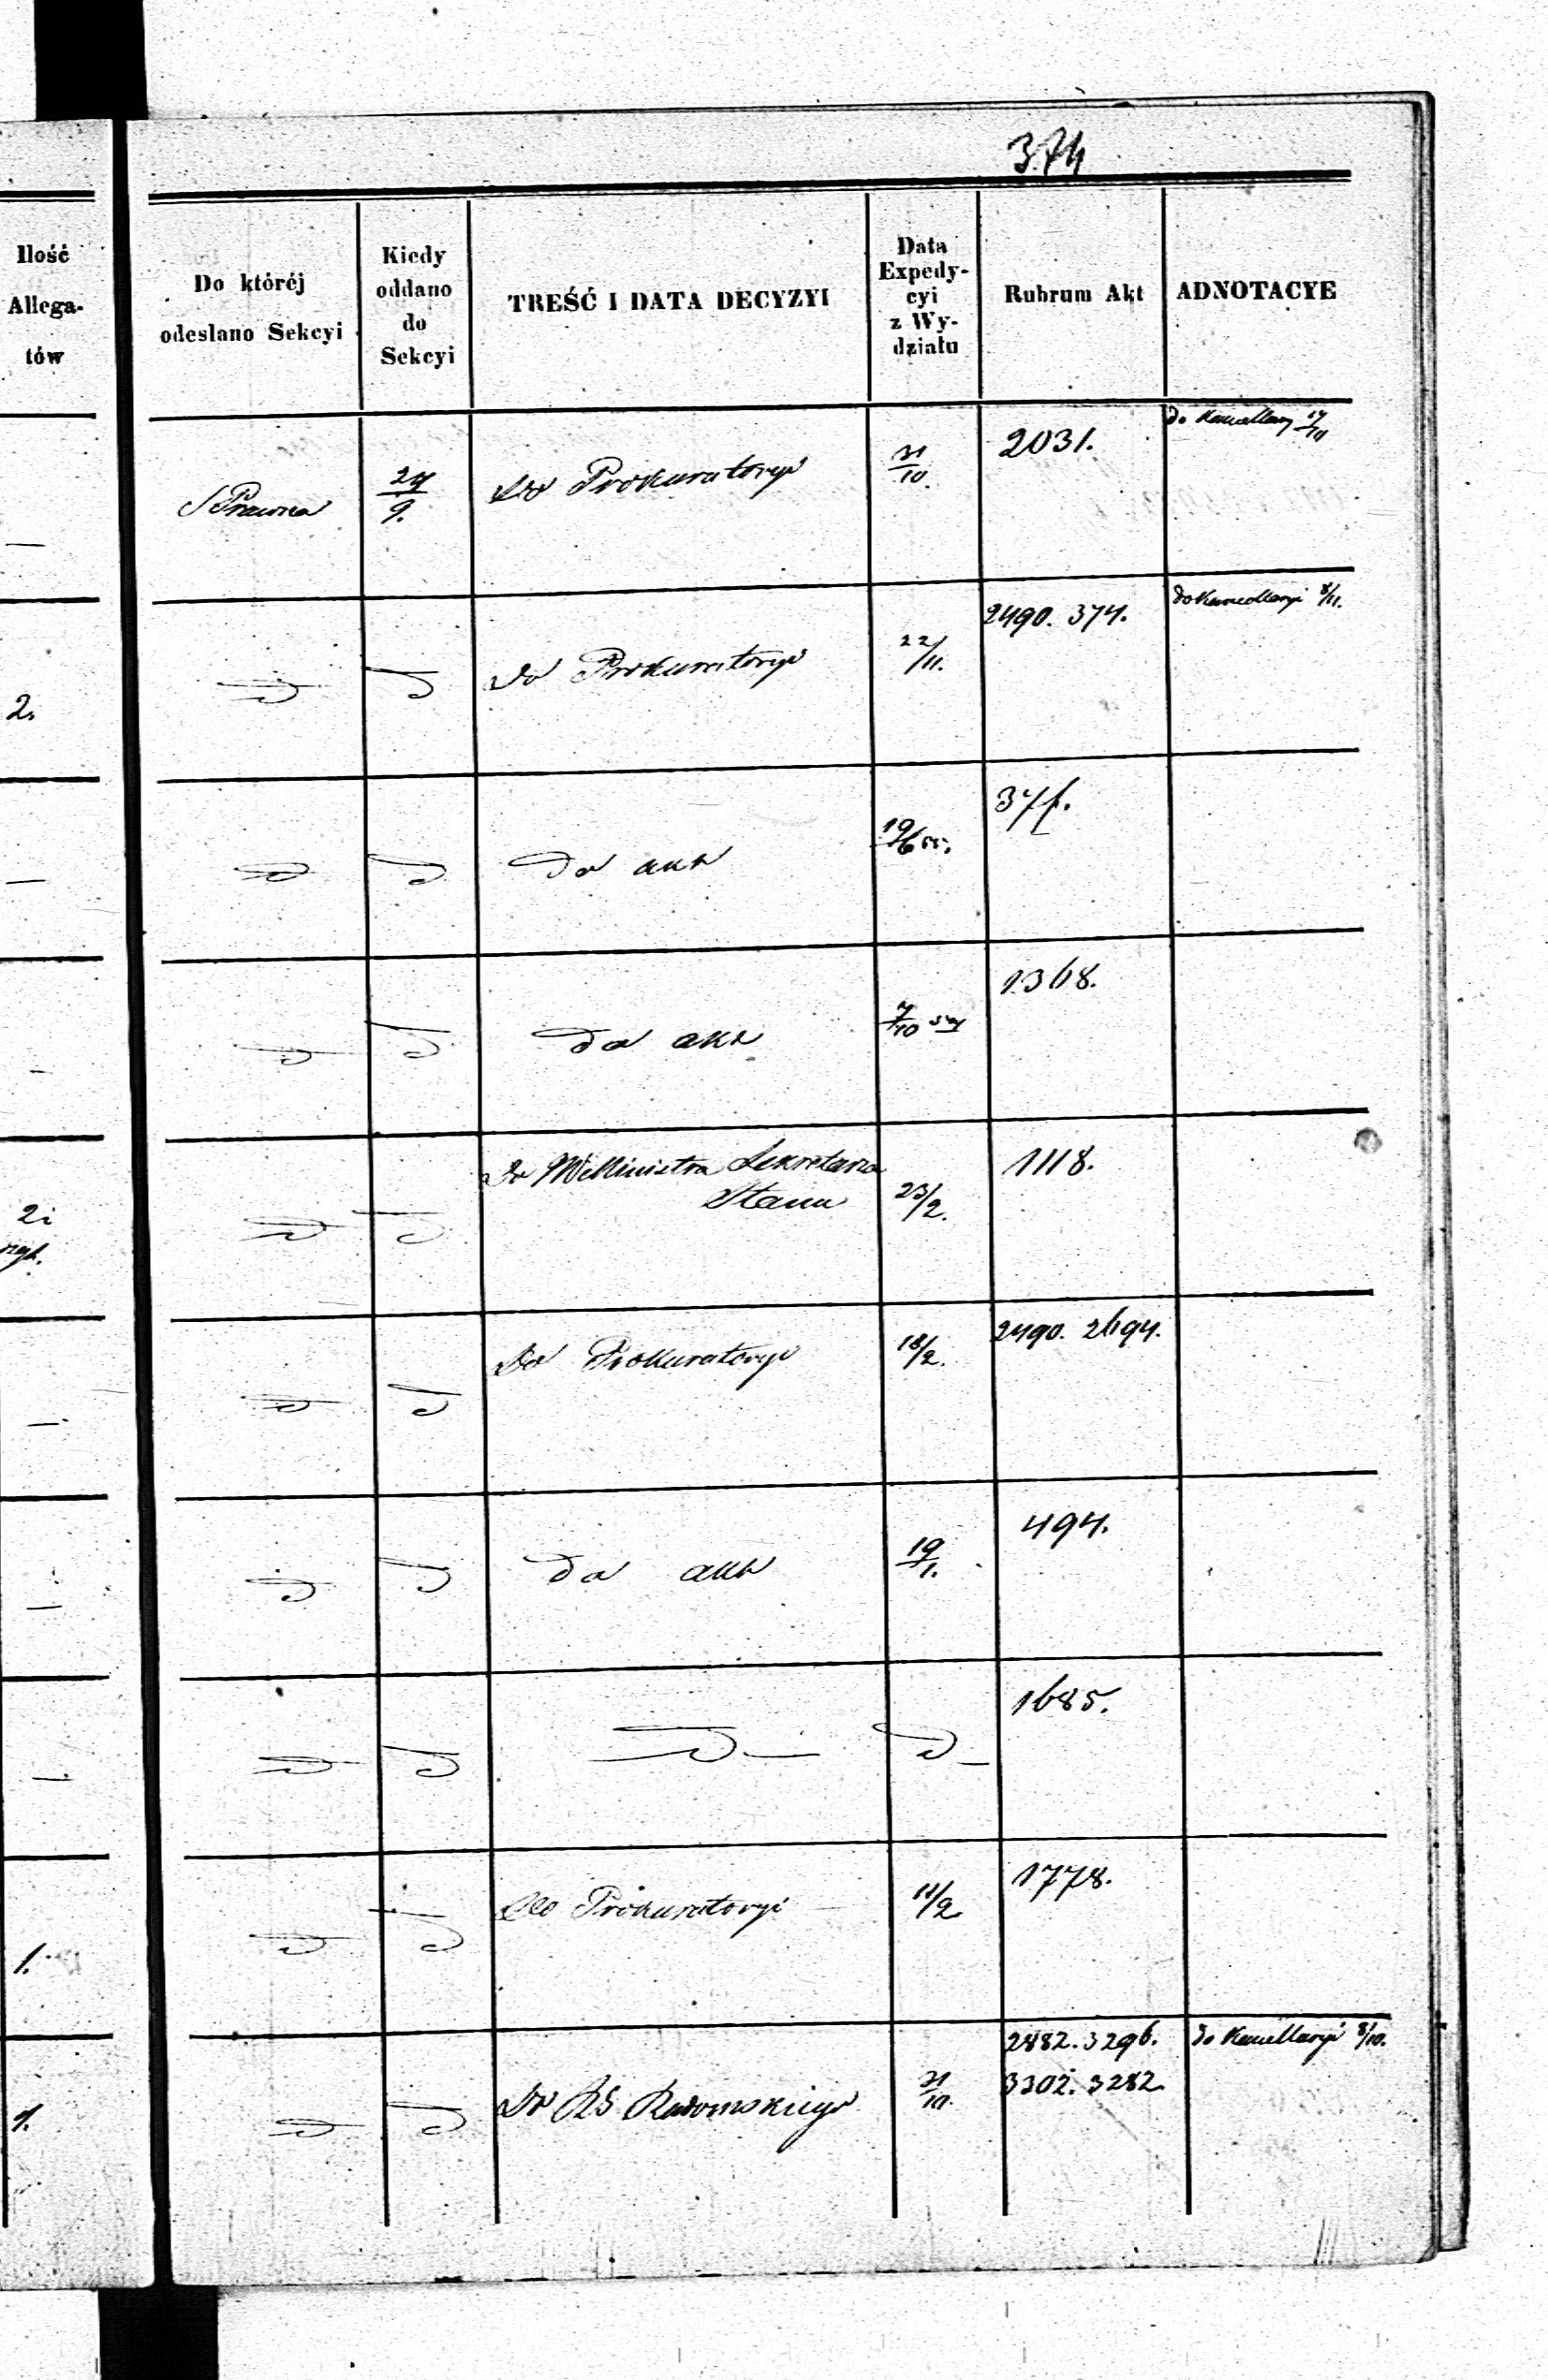 374
Ilość
Allega-
tów
Do któréj
odesłano Sekcyi
Kiedy
oddano
do
Sekcyi
TREŚĆ I DATA DECYZYI
Data
Expedy-
cyi
z Wy-
działu
Rubrum Akt
ADNOTACYE
— S Prawna 24/9. Do Prokuratoryi 31/10. 2031. do Kancellary 17/11
2. Do Prokuratoryi 22/11. 2490. 374. do Kancellaryi 8/11.
— Do akt 19/6 55.
— Do akt 7/10 1368.
2 i Do Ministra Sekretarza
Stanu 23/2. 1118.
— Do Prokuratoryi 18/2. 2490. 2694.
— Do akt 19/1. 494.
— 1685.
1. Do Prokuratoryi 11/2 1778.
2482. 3296. do Kancellaryi 8/10.
1. Do RG Radomskiego 31/10. 3302. 3282.